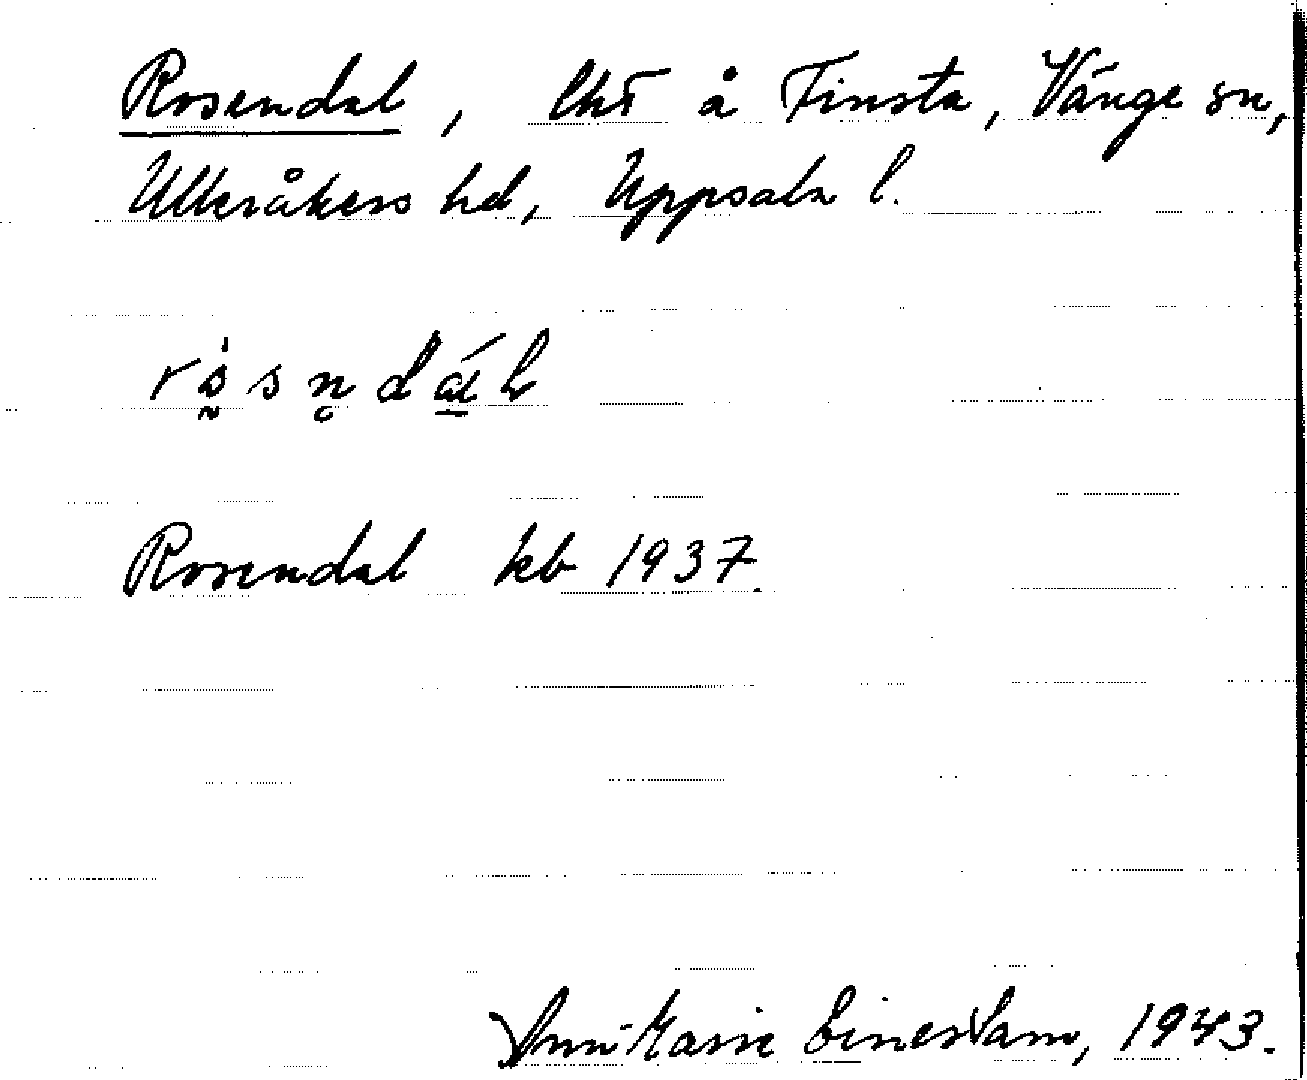 Rosendal, lht å Finsta, Vänge sn,
Ulleråkers hd, Uppsala l.
Rosendal kb 1937.
Ann-Marie 1943.